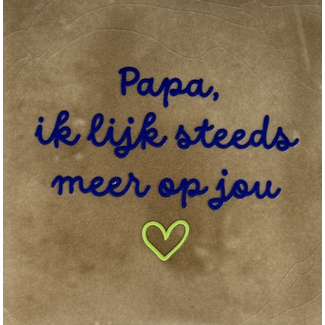 Papa,
ik lijk steeds
meer op jou